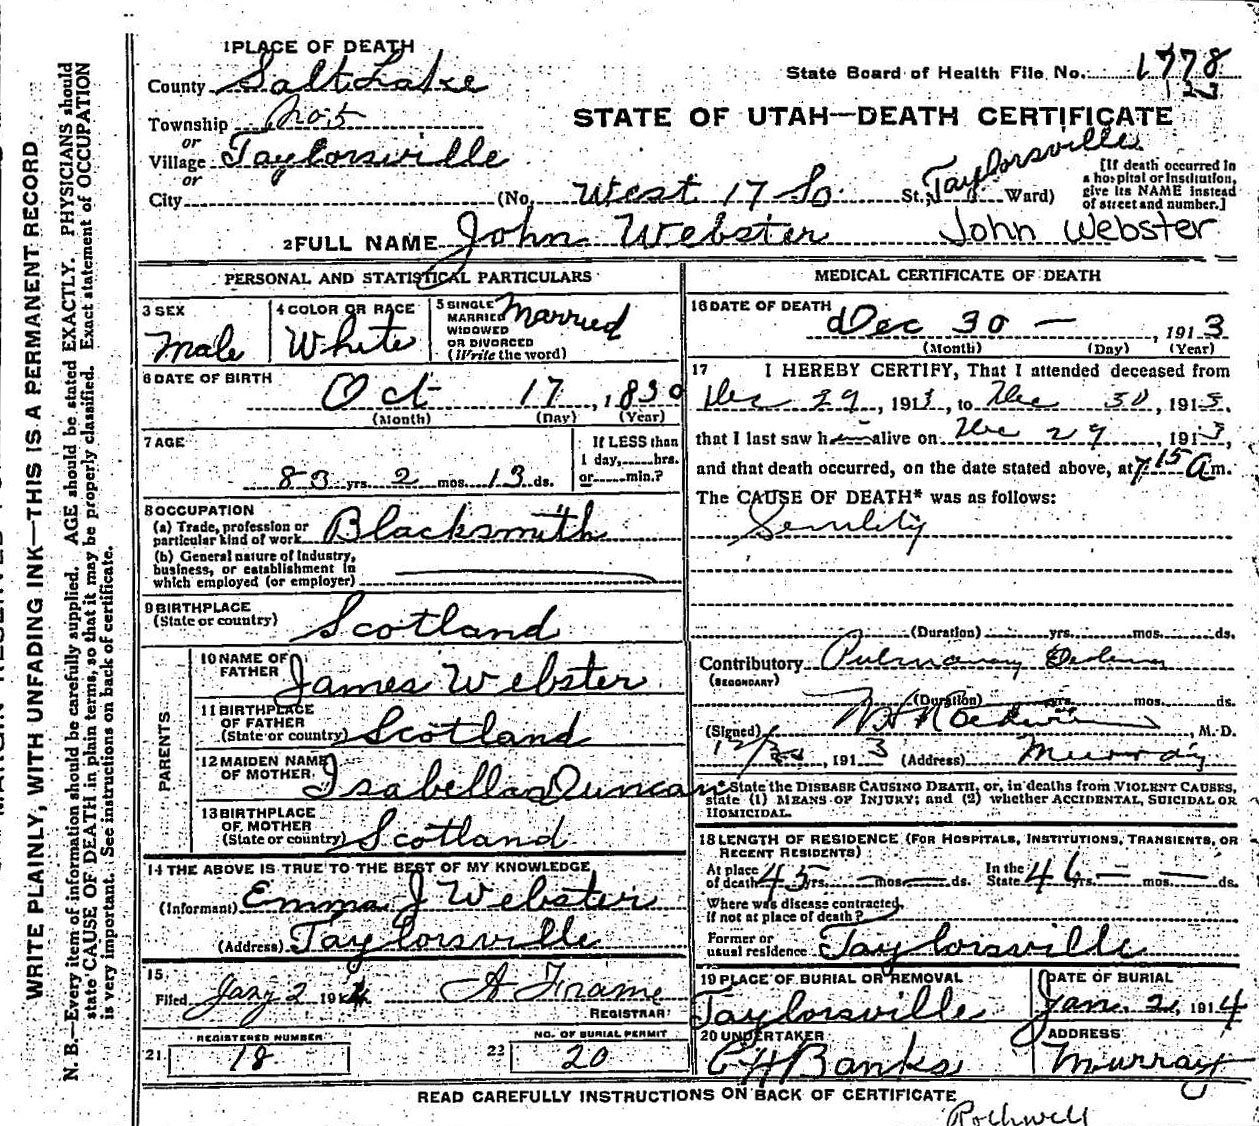 1 PLACE OF DEATH
County Salt Lake
State Board of Health File No. 1778
Township No 5
STATE OF UTAH—DEATH CERTIFICATE
or
Village Taylorsville
or
City (No. West 17 So St; Taylorsville Ward)
[If death occurred in
a hospital or institution,
give its NAME instead
of street and number.]
2 FULL NAME John Webster John Webster
PERSONAL AND STATISTICAL PARTICULARS
3 SEX
Male
4 COLOR OR RACE
White
5 SINGLE
MARRIED
WIDOWED
OR DIVORCED
(Write the word)
Married
6 DATE OF BIRTH
Oct 17, 1830
(Month) (Day) (Year)
7 AGE
83 yrs. 2 mos. 13 ds.
If LESS than
1 day, hrs.
or min.?
8 OCCUPATION
(a) Trade, profession or
particular kind of work Blacksmith
(b) General nature of industry,
business, or establishment in
which employed (or employer)
9 BIRTHPLACE
(State or country) Scotland
PARENTS
10 NAME OF
FATHER James Webster
11 BIRTHPLACE
OF FATHER
(State or country) Scotland
12 MAIDEN NAME
OF MOTHER Isabella Duncan
13 BIRTHPLACE
OF MOTHER
(State or country) Scotland
14 THE ABOVE IS TRUE TO THE BEST OF MY KNOWLEDGE
(Informant) Emma J Webster
(Address) Taylorsville
15
Filed Jany 2 1914 A Frame
REGISTRAR
REGISTERED NUMBER
21 18
NO. OF BURIAL PERMIT
22 20
MEDICAL CERTIFICATE OF DEATH
16 DATE OF DEATH
Dec 30 —, 1913
(Month) (Day) (Year)
17 I HEREBY CERTIFY, That I attended deceased from
Dec 29, 1913, to Dec 30, 1913,
that I last saw h alive on Dec 29, 1913,
and that death occurred, on the date stated above, at 7 15 A m.
The CAUSE OF DEATH* was as follows:
Senility
(Duration) yrs. mos. ds.
Contributory Pulmonary Edema
(SECONDARY)
(Duration) yrs. mos. ds.
(Signed) M. D.
, 1913 (Address) Murray
* State the DISEASE CAUSING DEATH, or, in deaths from VIOLENT CAUSES,
state (1) MEANS OF INJURY; and (2) whether ACCIDENTAL, SUICIDAL OR
HOMICIDAL.
18 LENGTH OF RESIDENCE (FOR HOSPITALS, INSTITUTIONS, TRANSIENTS, OR
RECENT RESIDENTS)
At place
of death 45 yrs. — mos. — ds.
In the
State 46 yrs. — mos. — ds.
Where was disease contracted,
if not at place of death?
Former or
usual residence Taylorsville
19 PLACE OF BURIAL OR REMOVAL
Taylorsville
DATE OF BURIAL
Jan. 2, 1914
20 UNDERTAKER
Banks
ADDRESS
Murray
READ CAREFULLY INSTRUCTIONS ON BACK OF CERTIFICATE
Rothwell
WRITE PLAINLY, WITH UNFADING INK—THIS IS A PERMANENT RECORD
N. B.—Every item of information should be carefully supplied. AGE should be stated EXACTLY. PHYSICIANS should
state CAUSE OF DEATH in plain terms, so that it may be properly classified. Exact statement of OCCUPATION
is very important. See instructions on back of certificate.